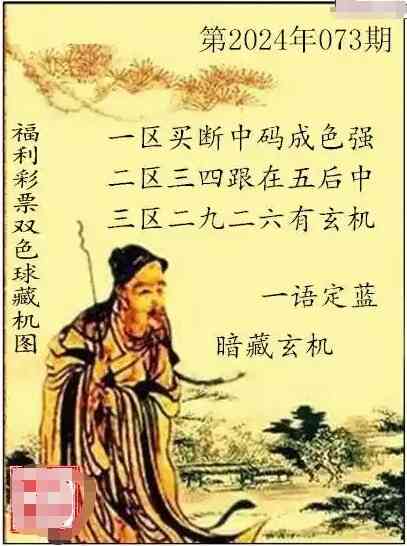 第2024年073期
福利彩票双色球藏机图
一区买断中码成色强
二区三四跟在五后中
三区二九二六有玄机
一语定蓝
暗藏玄机